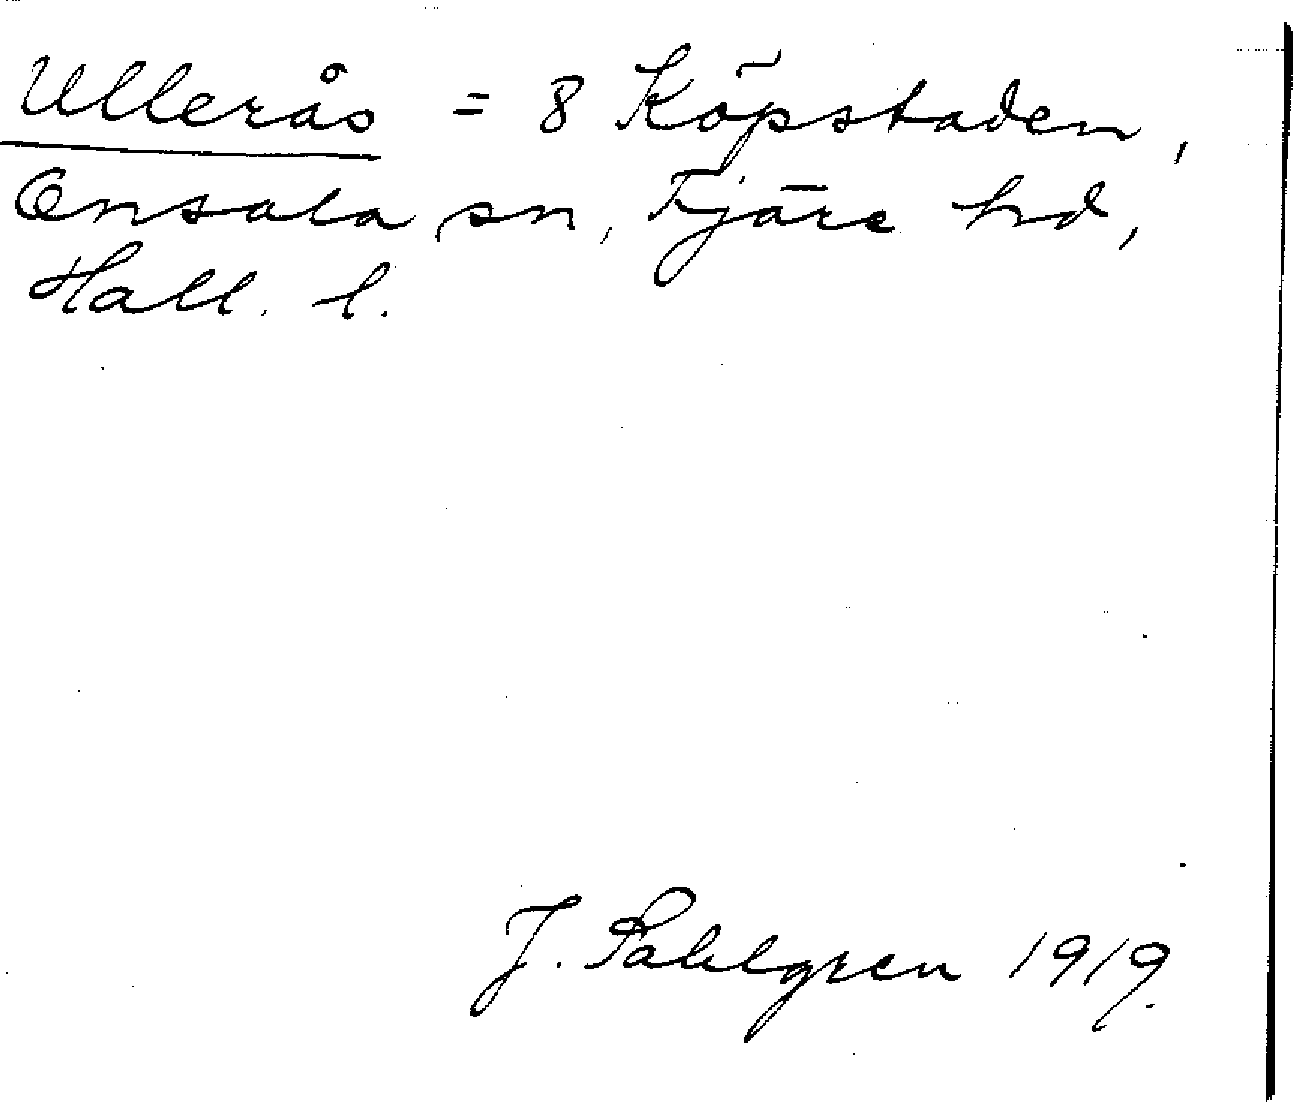 Ullerås = 8 Köpstaden,
Onsala sn, Fjäre hd,
Hall. l.
J. Sahlgren 1919.